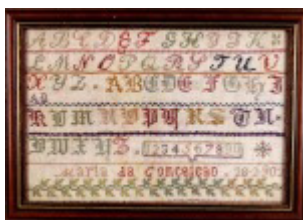 ABCDEFGHIJK
LMNOPQRSTUV
XYZ. ABCDEFGHIJ
KLMNOPQRSTU.
VWXYZ. 1234567890
Maria da Conceição